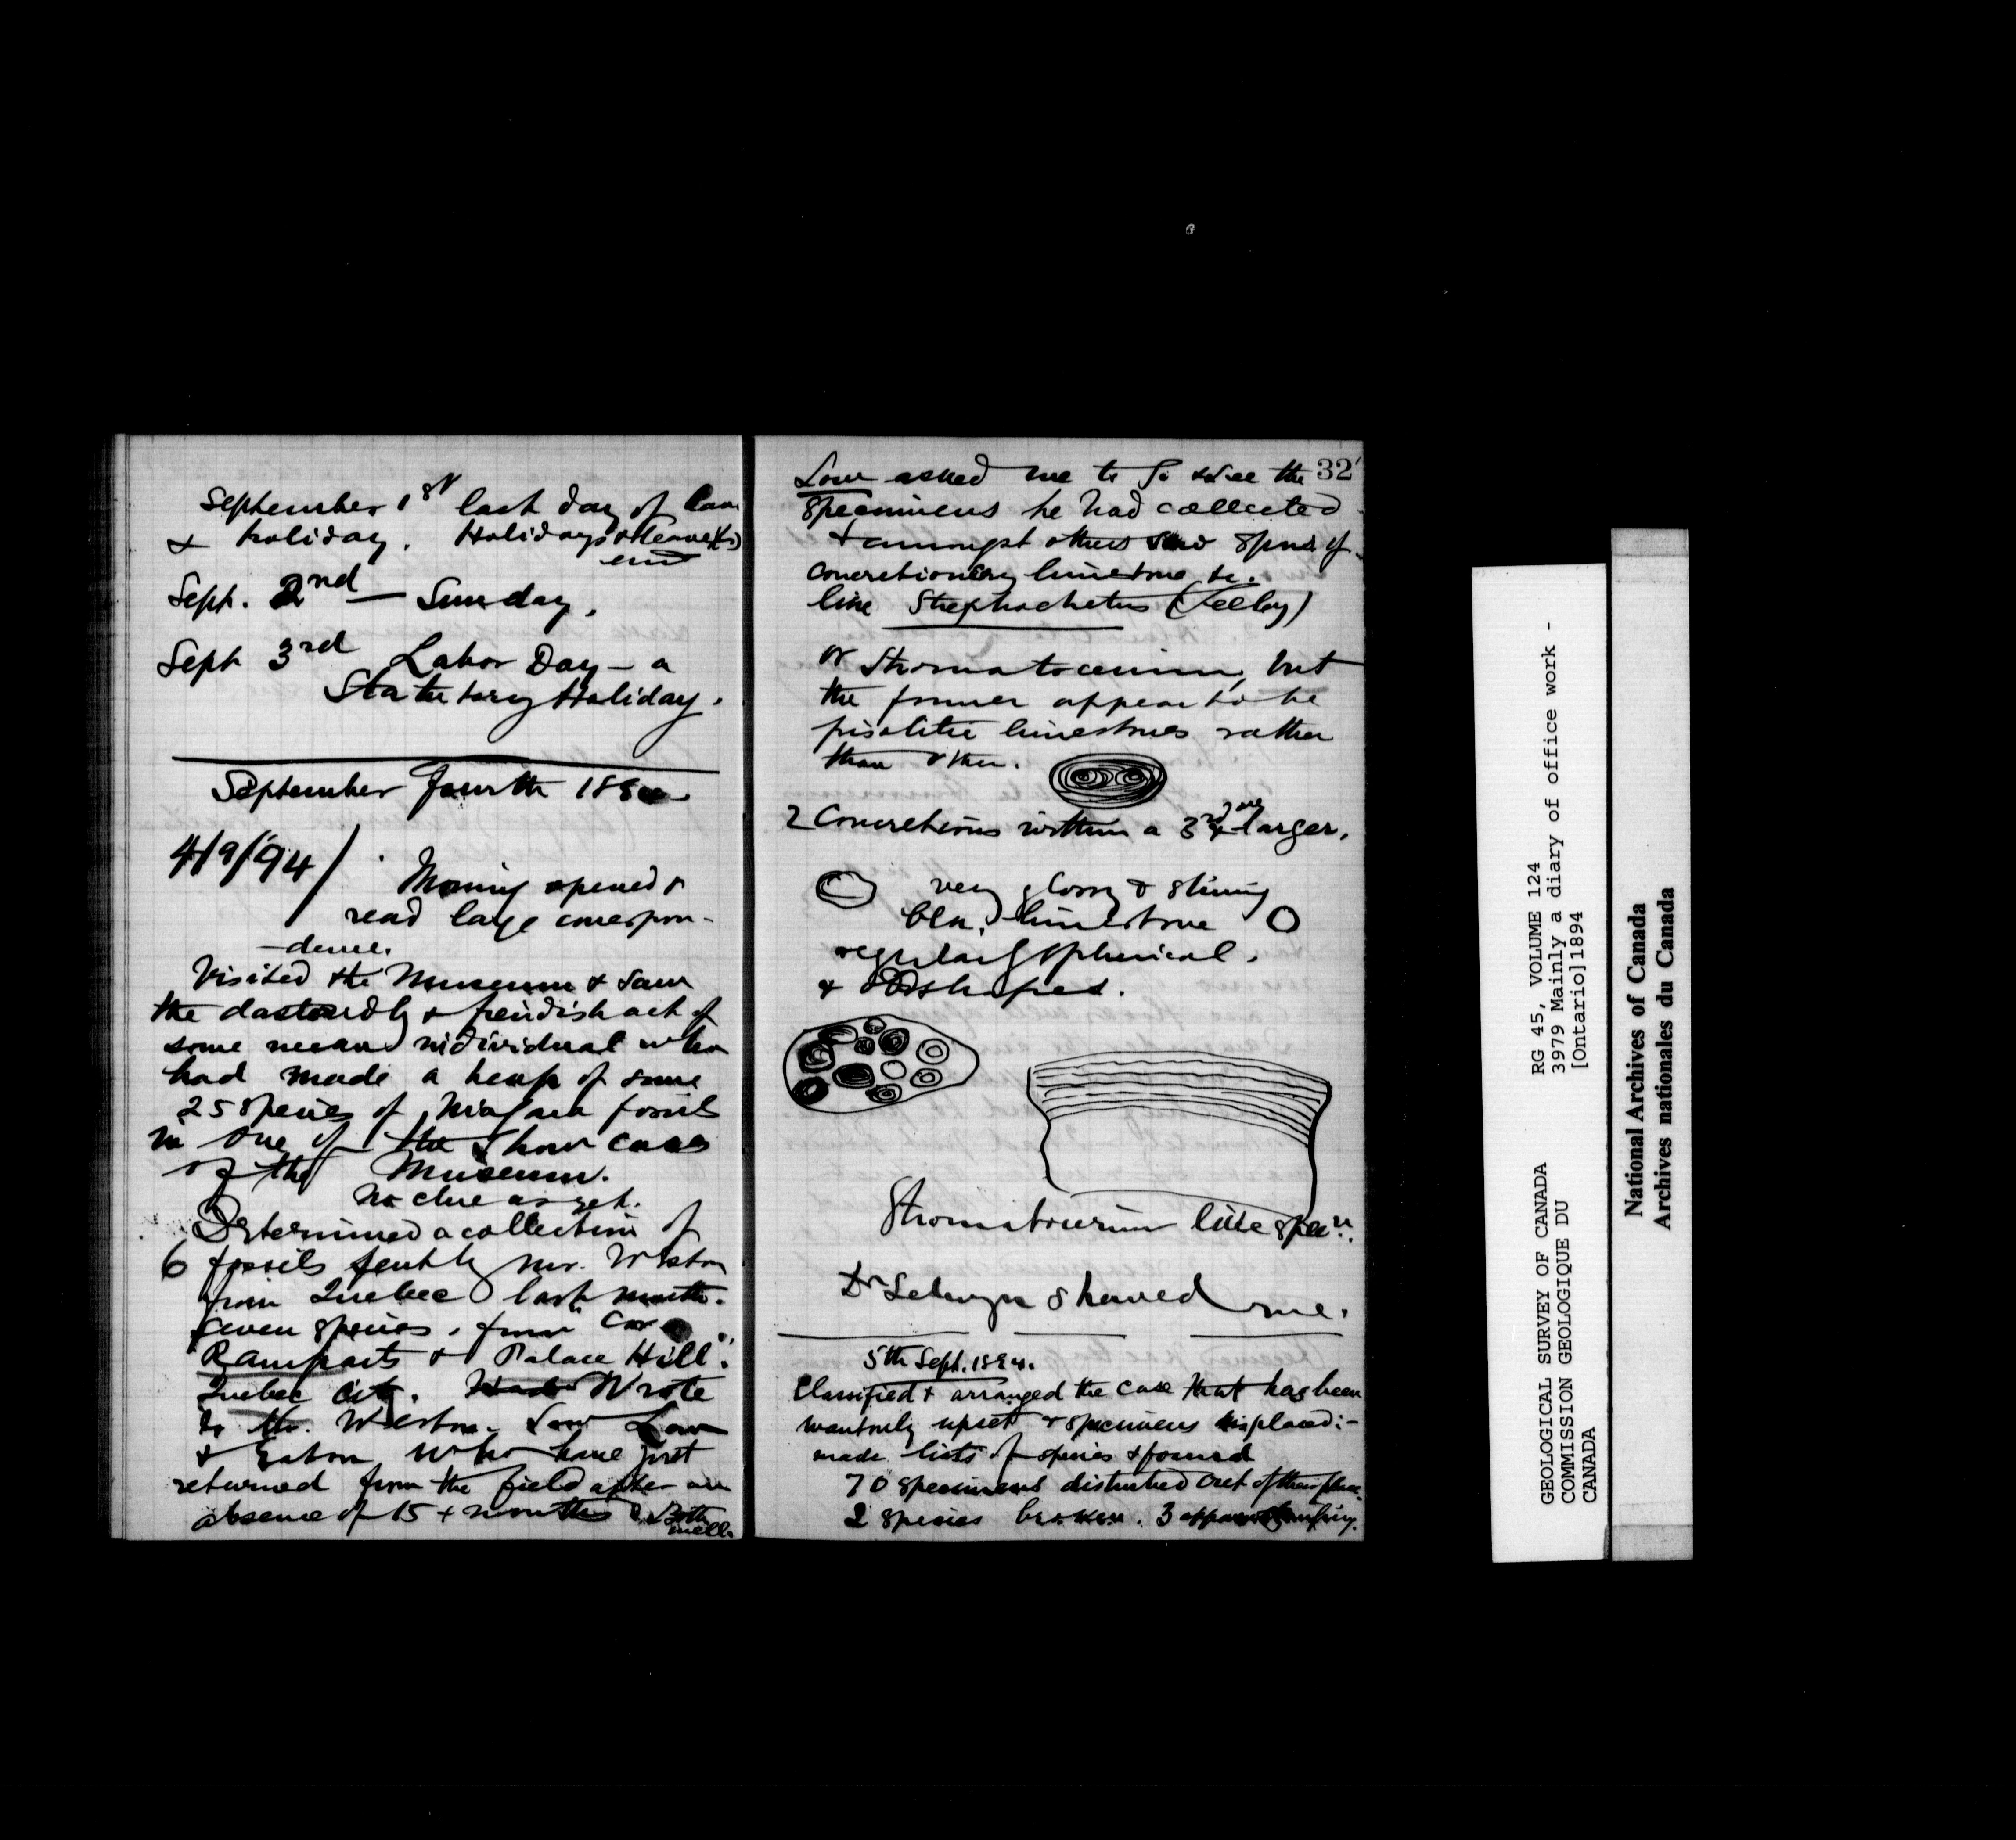 September 1st last day of leave
& holiday. Holidays & leave
end
Sept. 2nd — Sunday.
Sept 3rd Labor Day — a
Statutory Holiday.
September fourth 189
4/9/94/
Morning opened &
read large correspon-
-dence.
Visited the Museum & saw
the dastardly & fiendish act of
some mean individual who
had made a heap of some
25 species of Niagara fossils
in one of the show cases
of the Museum.
No clue as yet.
Determined a collection of
6 fossils sent by Mr. Weston
from Quebec last month.
Seven species, from Cor.
Ramparts & Palace Hill".
Quebec City. Wrote
to Mr. Weston. Saw Low
& Eaton who have just
returned from the field after an
absence of 15 + months. Both
well.
32
Low asked me to go & see the
specimens he had collected
& amongst others saw spns. of
concretionary limestone &c.
like Strephochetus (Seeley)
or Stromatocerium, but
the former appear to be
pisolitic limestones rather
than other.
2 Concretions within a 3rd one larger.
very glossy & shining
blk. limestone
regularly spherical.
& shapes.
Stromatocerium like specn.
Dr Selwyn showed me.
5th Sept. 1894.
Classified & arranged the case that has been
wantonly upset & specimens misplaced:-
made lists of species & found
70 specimens disturbed out of their place.
2 species broken. 3 apparently missing.
GEOLOGICAL SURVEY OF CANADA
COMMISSION GEOLOGIQUE DU
CANADA
RG 45, VOLUME 124
3979 Mainly a diary of office work -
[Ontario]1894
National Archives of Canada
Archives nationales du Canada